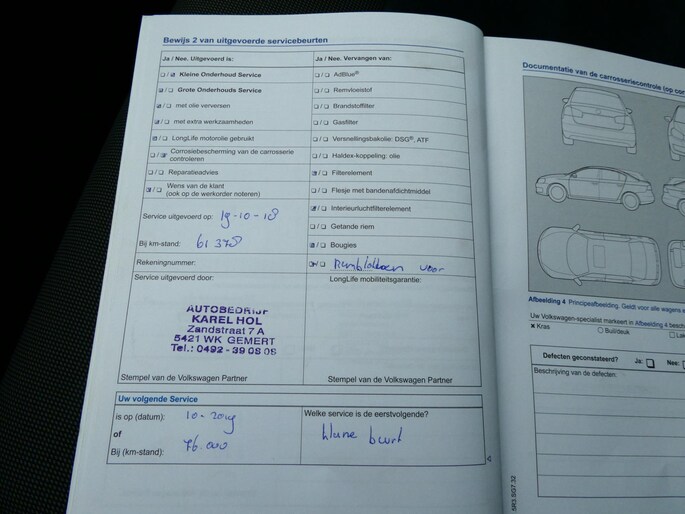 Bewijs 2 van uitgevoerde servicebeurten
Ja / Nee. Uitgevoerd is:
Kleine Onderhoud Service
Grote Onderhouds Service
met olie verversen
met extra werkzaamheden
LongLife motorolie gebruikt
Corrosiebescherming van de carrosserie
controleren
Reparatieadvies
Wens van de klant
(ook op de werkorder noteren)
Service uitgevoerd op: 19-10-18
Bij km-stand: 61 378
Rekeningnummer:
Service uitgevoerd door:
AUTOBEDRIJF
KAREL HOL
Zandstraat 7 A
5421 WK GEMERT
Tel.: 0492 - 39 08 08
Stempel van de Volkswagen Partner
Ja / Nee. Vervangen van:
AdBlue®
Remvloeistof
Brandstoffilter
Gasfilter
Versnellingsbakolie: DSG®, ATF
Haldex-koppeling: olie
Filterelement
Flesje met bandenafdichtmiddel
Interieurluchtfilterelement
Getande riem
Bougies
Remblokken voor
LongLife mobiliteitsgarantie:
Stempel van de Volkswagen Partner
Uw volgende Service
is op (datum): 10-2019
of
Bij (km-stand): 76.000
Welke service is de eerstvolgende?
kleine beurt
Documentatie van de carrosseriecontrole (op
Afbeelding 4 Principeafbeelding. Geldt voor alle wagens
Uw Volkswagen-specialist markeert in Afbeelding 4
x Kras
Buil/deuk
Defecten geconstateerd? Ja: Nee:
Beschrijving van de defecten:
5R3.SG7.32